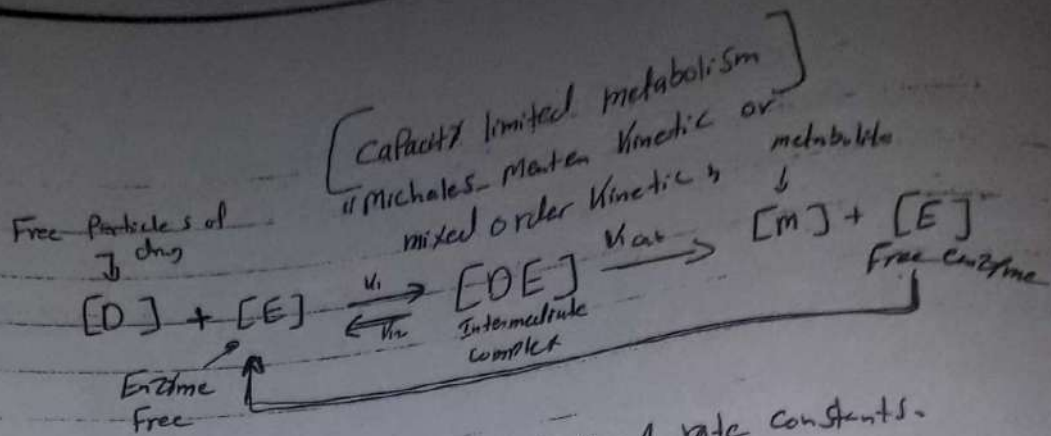 [Capacity limited metabolism]
"Michales-Menten Kinetic or
mixed order Kinetic"
metabolite
Free Particles of
drug
[D] + [E] K1 K2 [DE] Kcat [M] + [E]
Intermediate
complex
Free enzyme
Enzyme
Free
rate constants.